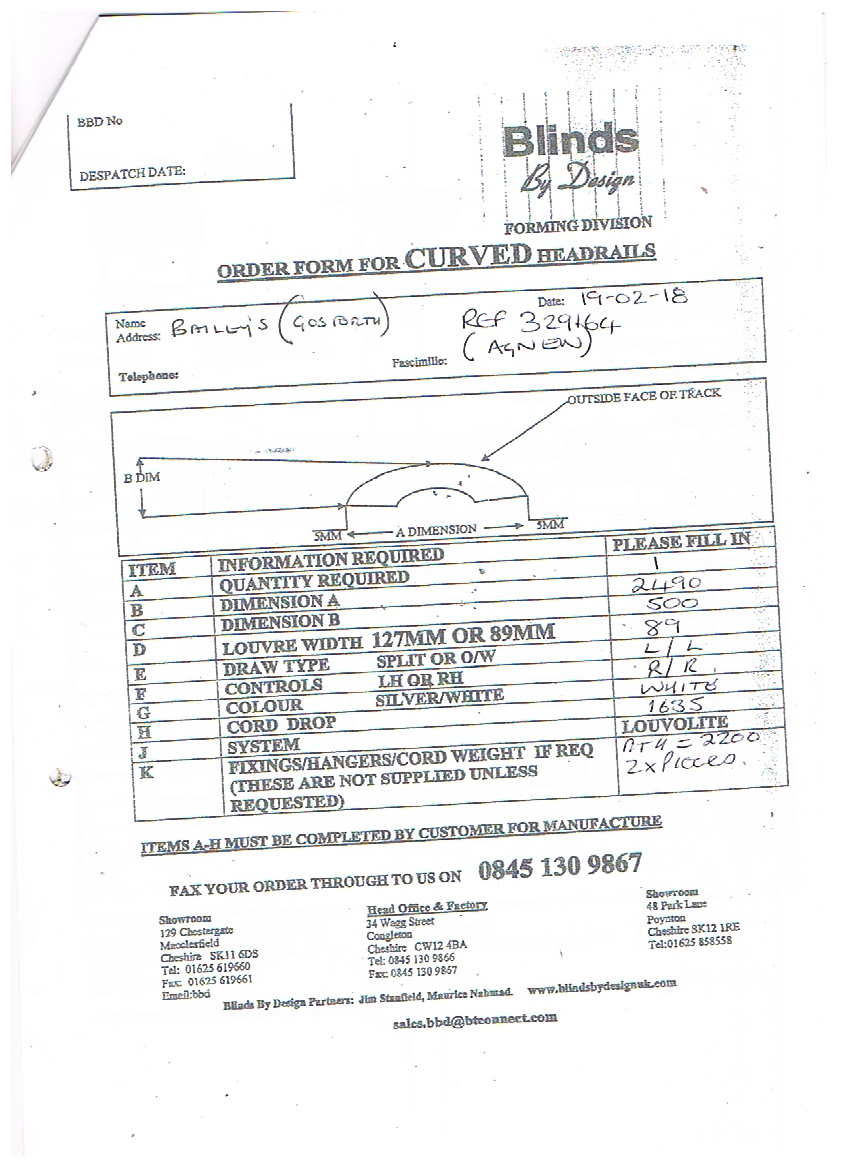 BBD No
DESPATCH DATE:
Blinds
By Design
FORMING DIVISION
ORDER FORM FOR CURVED HEADRAILS
Name
Address: BAILEY'S (GOSFORTH)
Date: 19-02-18
REF 329164
(AGNEW)
Telephone:
Fascimilie:
OUTSIDE FACE OF TRACK
B DIM
5MM
A DIMENSION
5MM
ITEM INFORMATION REQUIRED PLEASE FILL IN
A QUANTITY REQUIRED 1
B DIMENSION A 2490
C DIMENSION B 500
D LOUVRE WIDTH 127MM OR 89MM 89
E DRAW TYPE SPLIT OR O/W L/L
F CONTROLS LH OR RH R/R
G COLOUR SILVER/WHITE WHITE
H CORD DROP 1635
J SYSTEM LOUVOLITE
K FIXINGS/HANGERS/CORD WEIGHT IF REQ = 2200
(THESE ARE NOT SUPPLIED UNLESS 2x Pieces.
REQUESTED)
ITEMS A-H MUST BE COMPLETED BY CUSTOMER FOR MANUFACTURE
FAX YOUR ORDER THROUGH TO US ON 0845 130 9867
Showroom
129 Chestergate
Macclesfield
Cheshire SK11 6DS
Tel: 01625 619660
Fax: 01625 619661
Email:bbd
Head Office & Factory
34 Wagg Street
Congleton
Cheshire CW12 4BA
Tel: 0845 130 9866
Fax: 0845 130 9867
Showroom
48 Park Lane
Poynton
Cheshire SK12 1RE
Tel:01625 858558
Blinds By Design Partners: Jim Stanfield, Maurice Nahmad. www.blindsbydesignuk.com
sales.bbd@btconnect.com